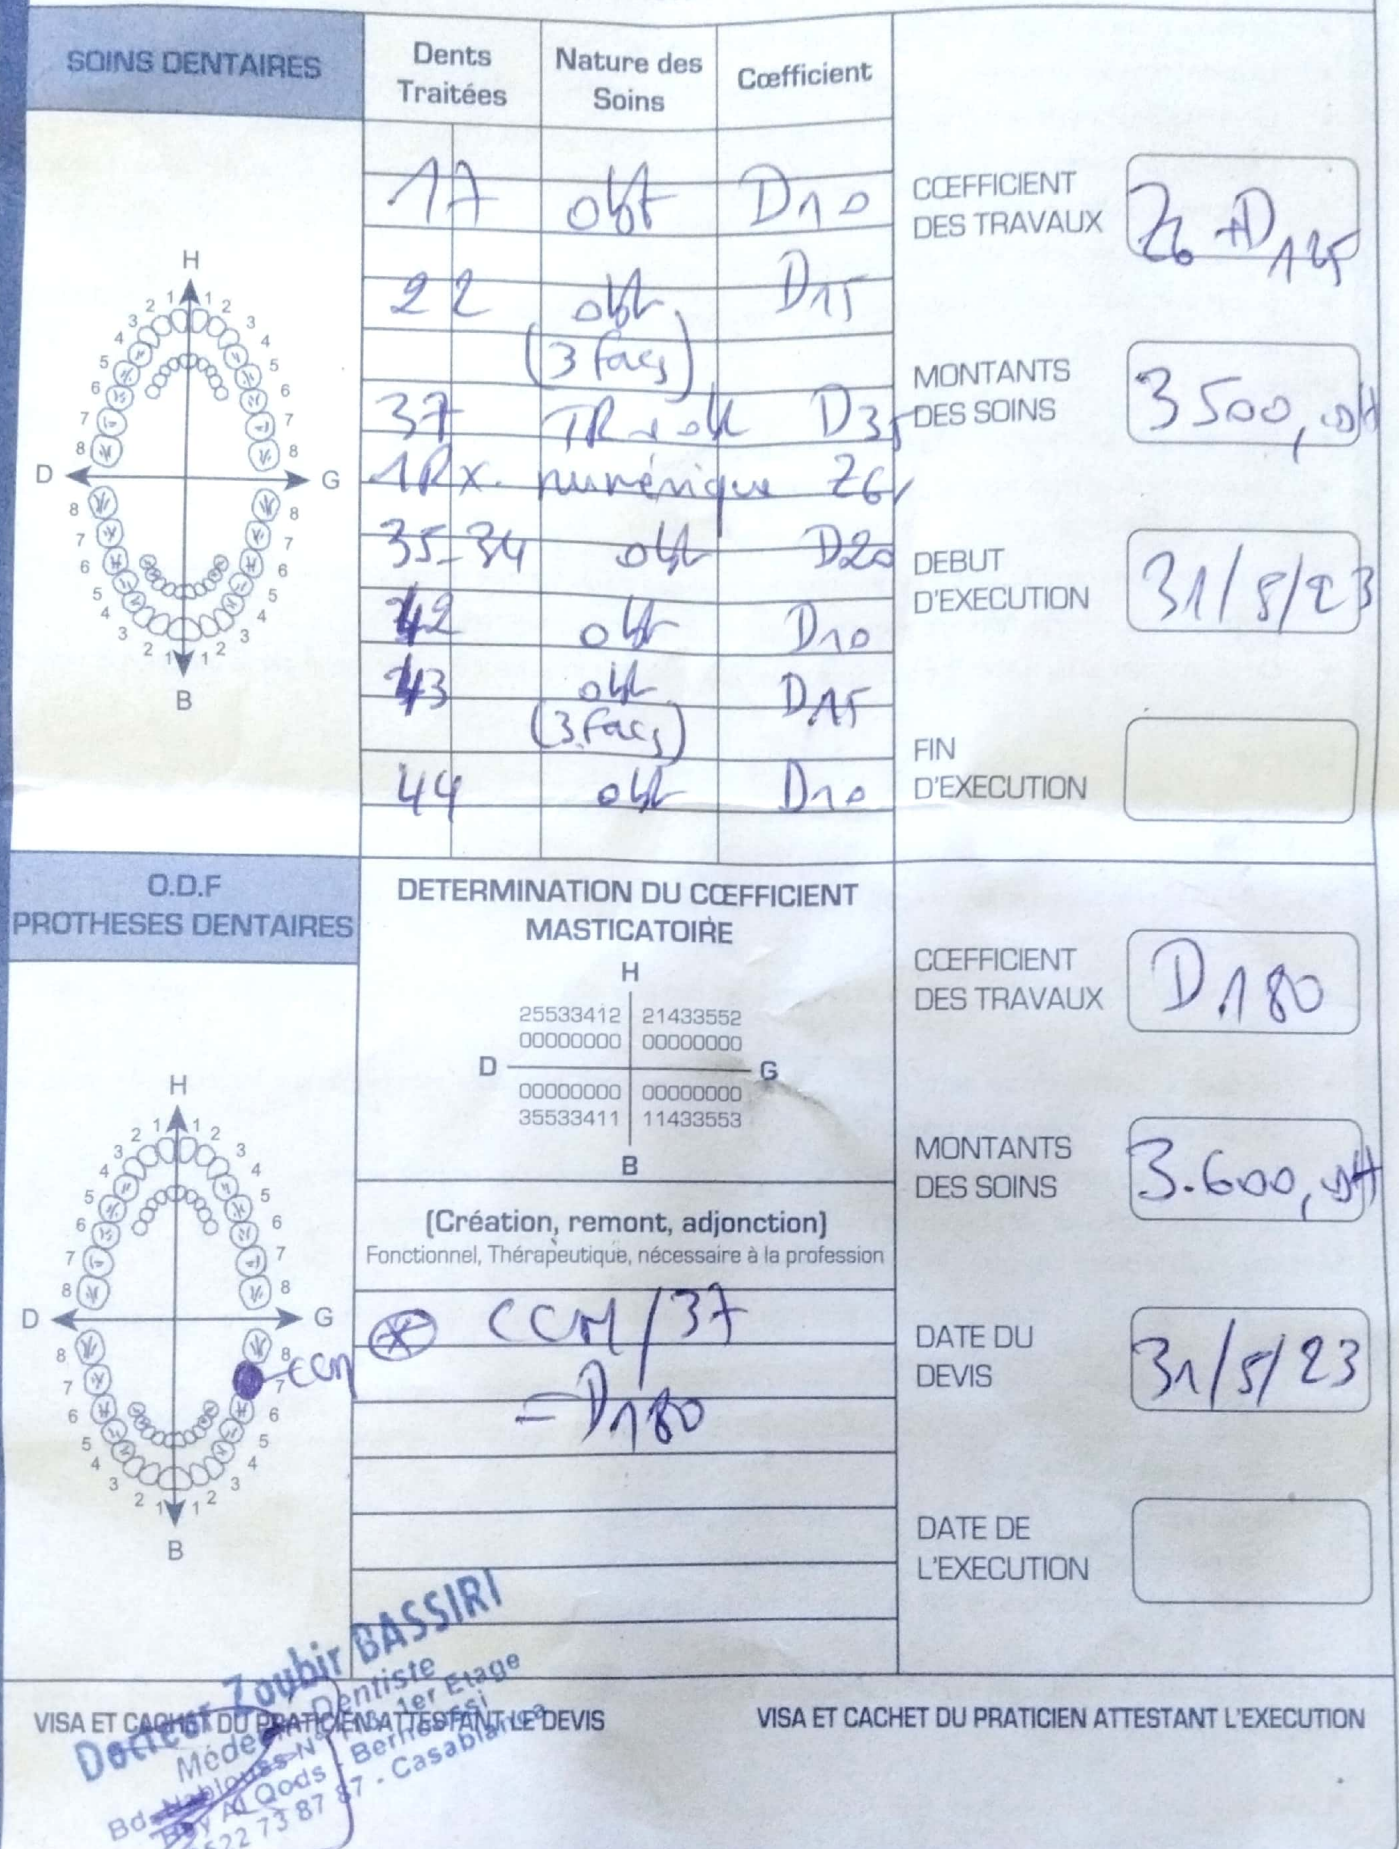 SOINS DENTAIRES
Dents Traitées
Nature des Soins
Cœfficient
17 obt D10
22 obt D15
(3 faces)
37 TR + obt D35
1Rx. numérique Z6
35-34 obt D20
42 obt D10
43 obt D15
(3 faces)
44 obt D10
H
D G
B
CŒFFICIENT
DES TRAVAUX
Z6 + D125
MONTANTS
DES SOINS
3500, DH
DEBUT
D'EXECUTION
31/5/23
FIN
D'EXECUTION
O.D.F
PROTHESES DENTAIRES
DETERMINATION DU CŒFFICIENT
MASTICATOIRE
H
25533412 21433552
00000000 00000000
D G
00000000 00000000
35533411 11433553
B
(Création, remont, adjonction)
Fonctionnel, Thérapeutique, nécessaire à la profession
CCM/37
= D180
H
D G
CCM
B
CŒFFICIENT
DES TRAVAUX
D180
MONTANTS
DES SOINS
3.600, DH
DATE DU
DEVIS
31/5/23
DATE DE
L'EXECUTION
VISA ET CACHET DU PRATICIEN ATTESTANT LE DEVIS
VISA ET CACHET DU PRATICIEN ATTESTANT L'EXECUTION
Docteur Zoubir BASSIRI
Médecin Dentiste
Bd. Nablouss N° 1er Etage
Hay Al Qods - Bernoussi
0522 73 87 87 - Casablanca